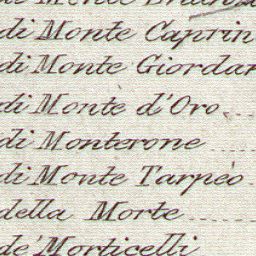 di Monte Caprin
di Monte Giordan
di Monte d'Oro
di Monterone
di Monte Tarpèo
della Morte
de' Morticelli